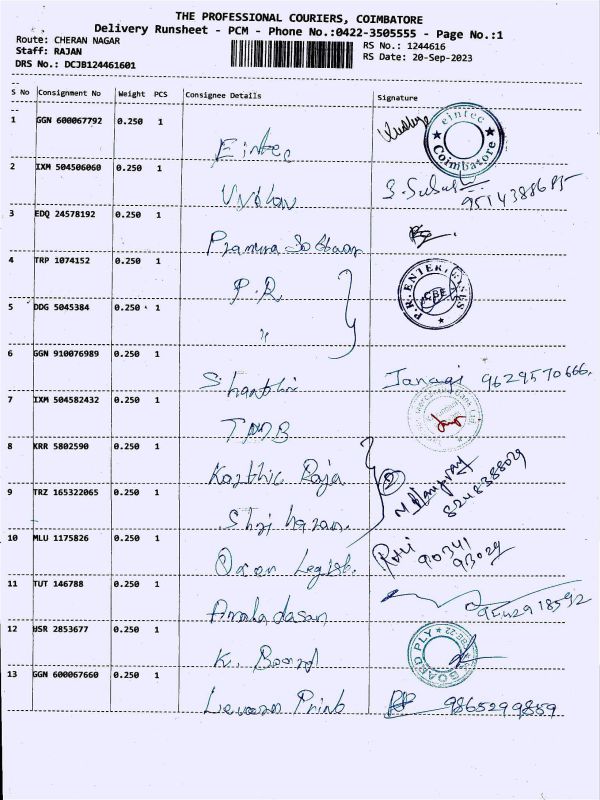 THE PROFESSIONAL COURIERS, COIMBATORE
Delivery Runsheet - PCM - Phone No.:0422-3505555 - Page No.:1
Route: CHERAN NAGAR
Staff: RAJAN
DRS No.: DCJB124461601
RS No.: 1244616
RS Date: 20-Sep-2023
S No Consignment No Weight PCS Consignee Details Signature
1 GGN 600067792 0.250 1 Eintec eintec Coimbatore
2 IXM 504506060 0.250 1
3 EDQ 24578192 0.250 1
4 TRP 1074152 0.250 1 P.R P.R.ENTERPRISES CBE
5 DDG 5045384 0.250 1 "
6 GGN 910076989 0.250 1 Shanthi Janagi 9629570666.
7 IXM 504582432 0.250 1 TMB
8 KRR 5802590 0.250 1 Karthic Raja 2 8248388029
9 TRZ 165322065 0.250 1 Shri haran.
10 MLU 1175826 0.250 1 Legist. 90341 93029
11 TUT 146788 0.250 1 Amaladasan 9542918592
12 USR 2853677 0.250 1 K. Board BOARD PLY
13 GGN 600067660 0.250 1 Print 9865299859